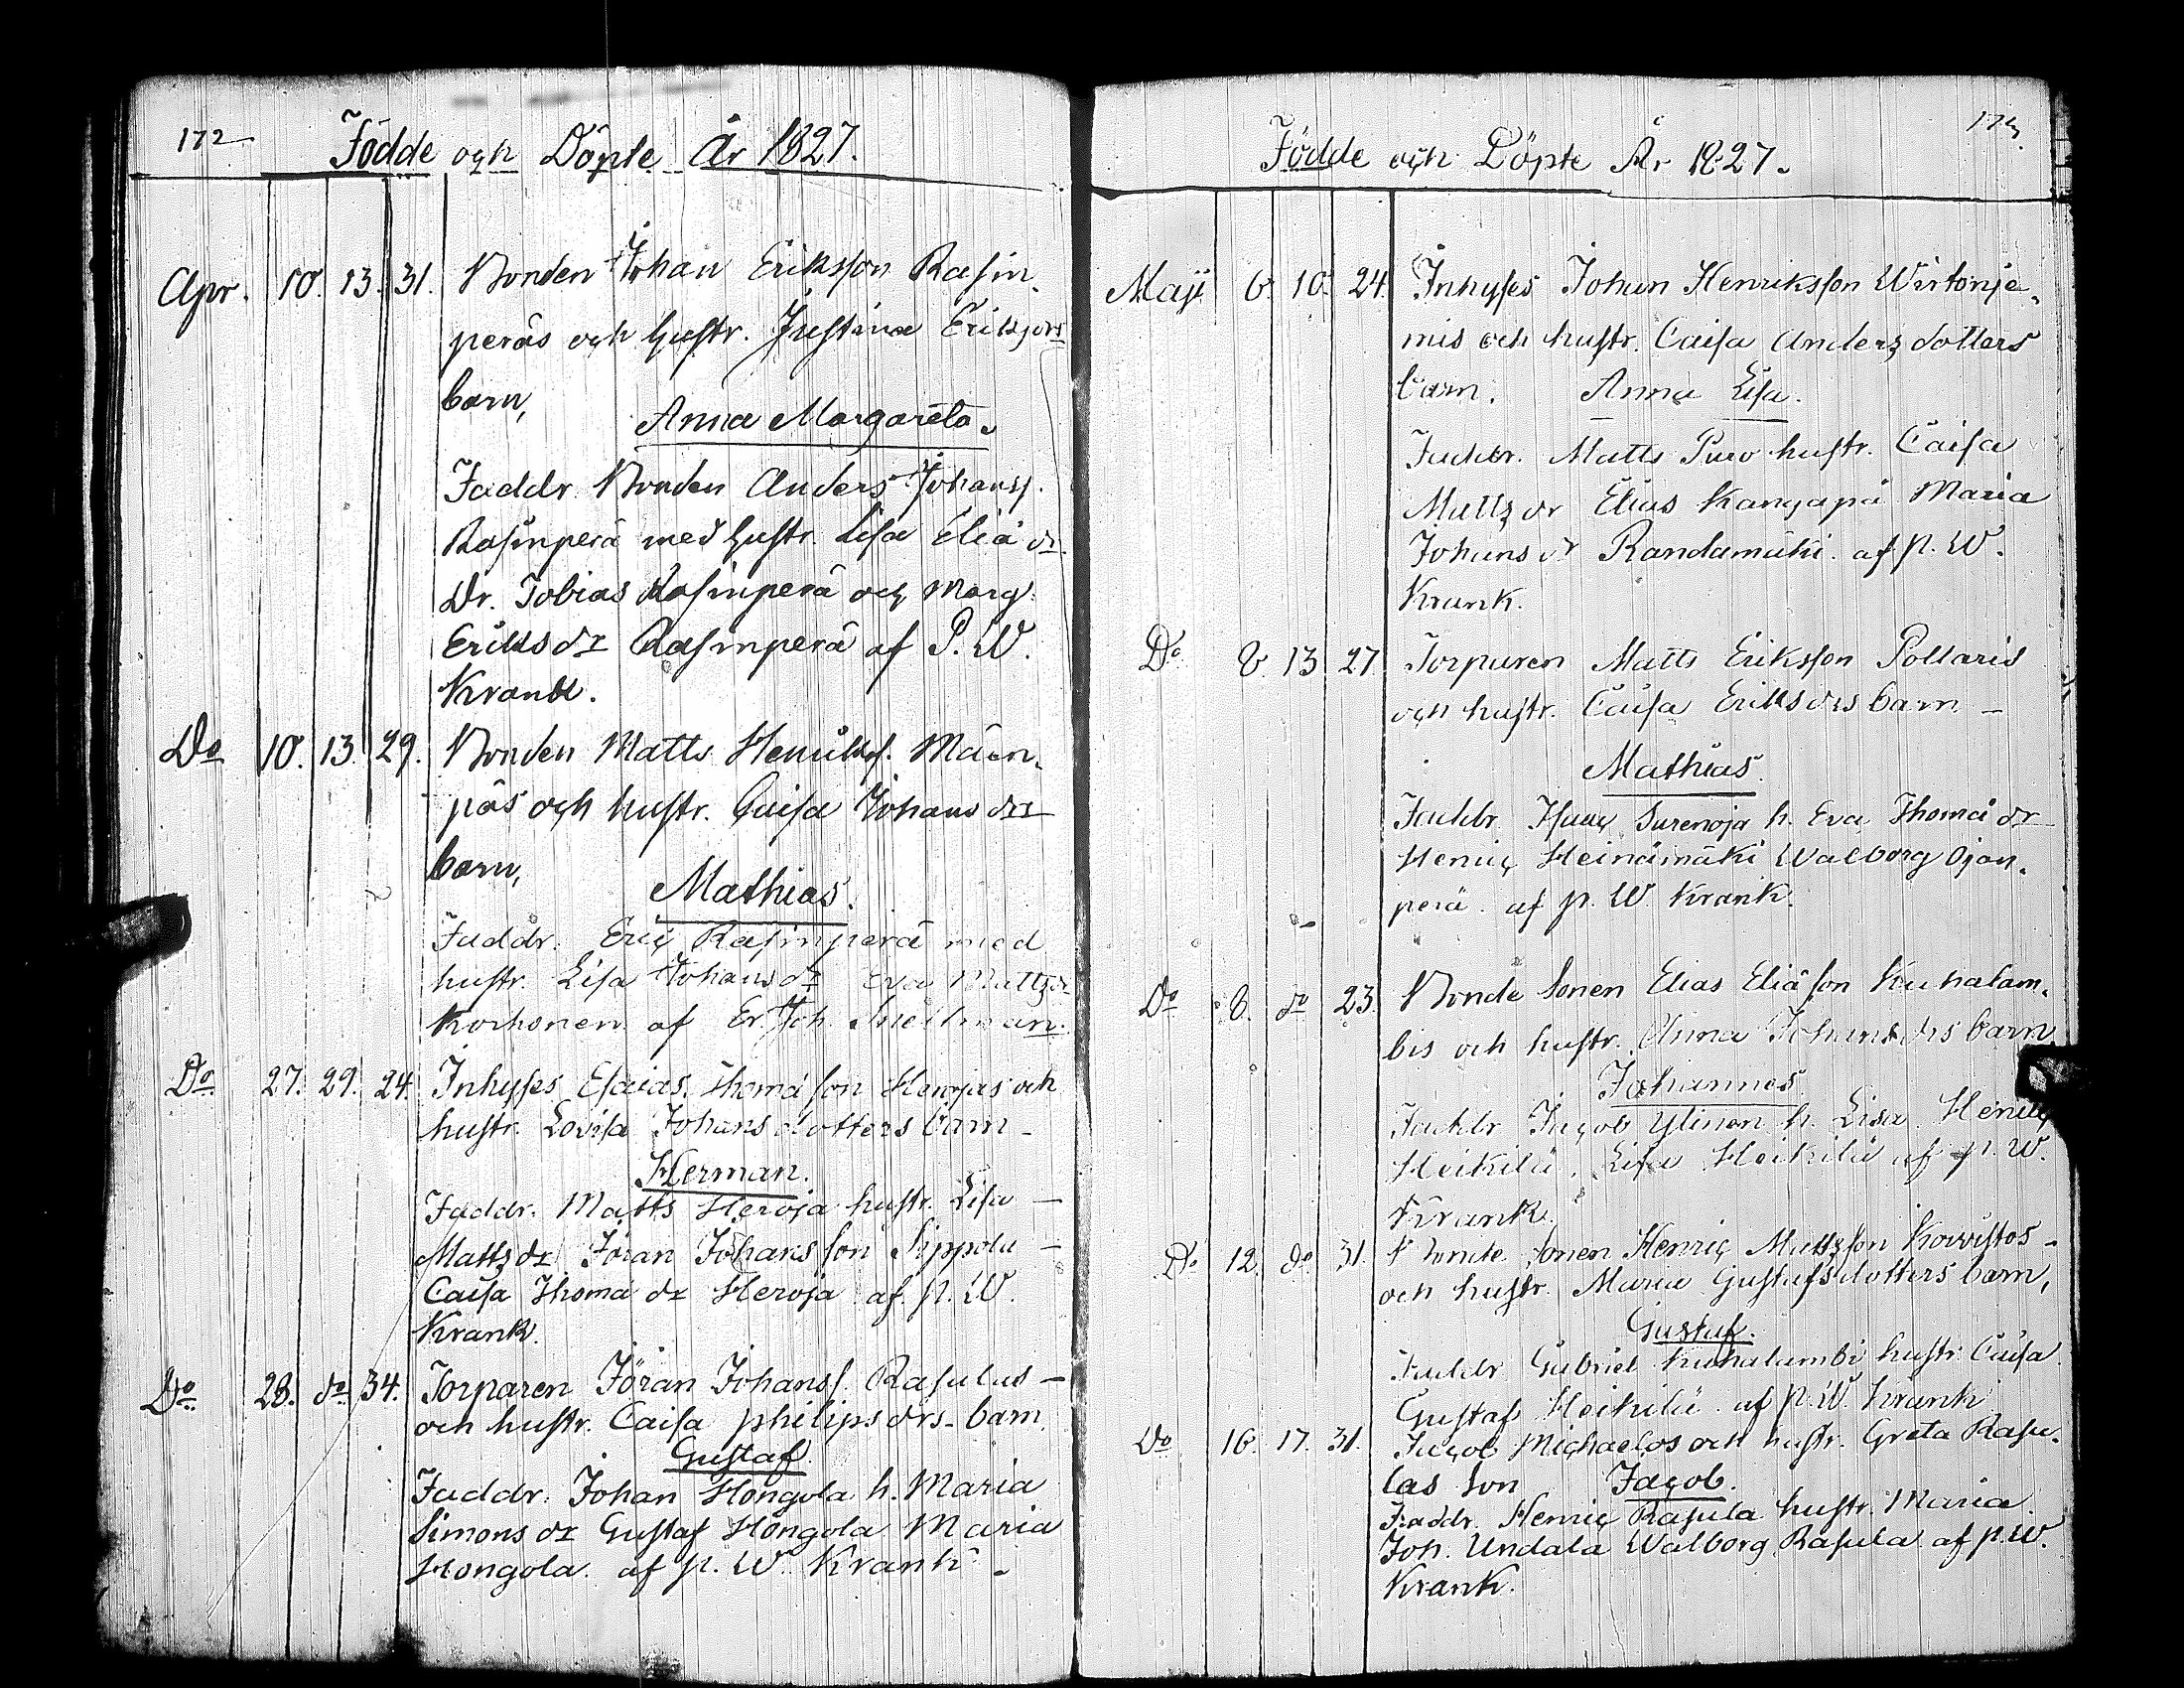 172
Födde och Döpte År 1827.
Apr. 10. 13. 31. Bonden Johan Eriksson Rasin-
peräs och hustr. Justina Eriksdrs
barn,
Anna Margareta.
Faddr. Bonden Anders Johanss.
Rasinperä med hustr. Lisa Eliä dr
Dr. Tobias Rasinperä och Marg.
Eriks dr Rasinperä af P. W.
Krank.
Do 10. 13. 29. Bonden Matts Henrikss. Mäen-
päs och hustr. Caisa Johans drs
barn,
Mathias.
Faddr. Eric Rasinperä med
hustr. Lisa Johans dr Eva Mattsdr
Korhonen af Er. Joh. Snellman.
Do 27. 29. 24. Inhyses Esaias Thomä son Herojas och
hustr. Lovisa Johans dotters barn -
Herman.
Faddr. Matts Heroja hustr. Lisa -
Matts dr Jöran Johans son Sippola -
Caisa Thomä dr Heroja af p. W.
Krank.
Do 28. do 34. Torparen Jöran Johanss. Rasulas -
och hustr. Caisa Philips drs barn.
Gustaf.
Faddr. Johan Hongola h. Maria
Simons dr Gustaf Hongola Maria
Hongola af p. W. Krank -
173
Födde och Döpte År 1827.
Maji 6. 10. 24. Inhyses Johan Henriksson Wirtonje-
mis och hustr. Caisa Anders dotters
barn. Anna Lisa.
Faddr. Matts Puro hustr. Caisa
Matts dr Elias Kangapä Maria
Johans dr Randamäki af p. W.
Krank.
Do 8. 13 27 Torparen Matts Eriksson Pollaris
och hustr. Caisa Eriks drs barn -
Mathias.
Faddr. Isaac Surenoja h. Eva Thomä dr
Henric Heinämäki Walborg Ojan-
perä af p. W. Krank.
Do 8. do 23. Bonde Sonen Elias Eliä son Kuhalam-
bis och hustr. Anna Johans drs barn
Johannes.
Faddr Jacob Ylinen h. Lisa Henric
Heikilä, Lisa Heikilä af p. W.
Krank.
Do 12. do 31. Bonde Sonen Henric Mattsson Kovistos -
och hustr. Maria Gustafs dotters barn,
Gustaf.
Faddr Gabriel Kuhalambi hustr. Caisa
Gustaf Heikilä af p. W. Krank
Do 16. 17. 31. Jacob Michaelos och hustr. Greta Rasu-
las Son Jacob.
Faddr. Henric Rasula hustr. Maria
Joh. Undala Walborg Rasula af p. W.
Krank.